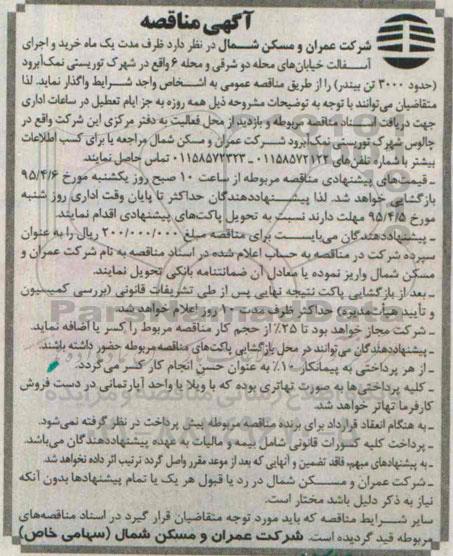 آگهی مناقصه
شرکت عمران و مسکن شمال در نظر دارد ظرف مدت یک ماه خرید و اجرای
آسفالت خیابان‌های محله دو شرقی و محله ۶ واقع در شهرک توریستی نمک‌آبرود
(حدود ۳۰۰۰ تن بیندر) را از طریق مناقصه عمومی به اشخاص واجد شرایط واگذار نماید. لذا
متقاضیان می‌توانند با توجه به توضیحات مشروحه ذیل همه روزه به جز ایام تعطیل در ساعات اداری
جهت دریافت اسناد مناقصه مربوطه و بازدید از محل فعالیت به دفتر مرکزی این شرکت واقع در
چالوس شهرک توریستی نمک‌آبرود شرکت عمران و مسکن شمال مراجعه یا برای کسب اطلاعات
بیشتر با شماره تلفن‌های ۰۱۱۵۸۵۷۲۱۲۲ - ۰۱۱۵۸۵۷۲۳۲۳ تماس حاصل نمایند.
ـ قیمت‌های پیشنهادی مناقصه مربوطه از ساعت ۱۰ صبح روز یکشنبه مورخ ۹۵/۴/۶
بازگشایی خواهد شد. لذا پیشنهاددهندگان حداکثر تا پایان وقت اداری روز شنبه
مورخ ۹۵/۴/۵ مهلت دارند نسبت به تحویل پاکت‌های پیشنهادی اقدام نمایند.
ـ پیشنهاددهندگان می‌بایست برای مناقصه مبلغ ۲۰۰/۰۰۰/۰۰۰ ریال را به عنوان
سپرده شرکت در مناقصه به حساب اعلام شده در اسناد مناقصه به نام شرکت عمران و
مسکن شمال واریز نموده یا معادل آن ضمانتنامه بانکی تحویل نمایند.
ـ بعد از بازگشایی پاکت نتیجه نهایی پس از طی تشریفات قانونی (بررسی کمیسیون
و تأیید هیأت‌مدیره) حداکثر ظرف مدت ۱۰ روز اعلام خواهد شد.
ـ شرکت مجاز خواهد بود تا ۲۵٪ از حجم کار مناقصه مربوط را کسر یا اضافه نماید.
ـ پیشنهاددهندگان می‌توانند در محل بازگشایی پاکت‌های مناقصه مربوطه حضور داشته باشند.
ـ از هر پرداختی به پیمانکار ۱۰٪ به عنوان حسن انجام کار کسر می‌گردد.
ـ کلیه پرداختی‌ها به صورت تهاتری بوده که با ویلا یا واحد آپارتمانی در دست فروش
کارفرما تهاتر خواهد شد.
ـ به هنگام انعقاد قرارداد برای برنده مناقصه مربوطه پیش پرداخت در نظر گرفته نمی‌شود.
ـ پرداخت کلیه کسورات قانونی شامل بیمه و مالیات به عهده پیشنهاددهندگان می‌باشد.
ـ به پیشنهادهای مبهم، فاقد تضمین و آنهایی که بعد از موعد مقرر واصل گردد ترتیب اثر داده نخواهد شد.
ـ شرکت عمران و مسکن شمال در رد یا قبول هر یک یا تمام پیشنهادها بدون آنکه
نیاز به ذکر دلیل باشد مختار است.
سایر شرایط مناقصه که باید مورد توجه متقاضیان قرار گیرد در اسناد مناقصه‌های
مربوطه قید گردیده است. شرکت عمران و مسکن شمال (سهامی خاص)